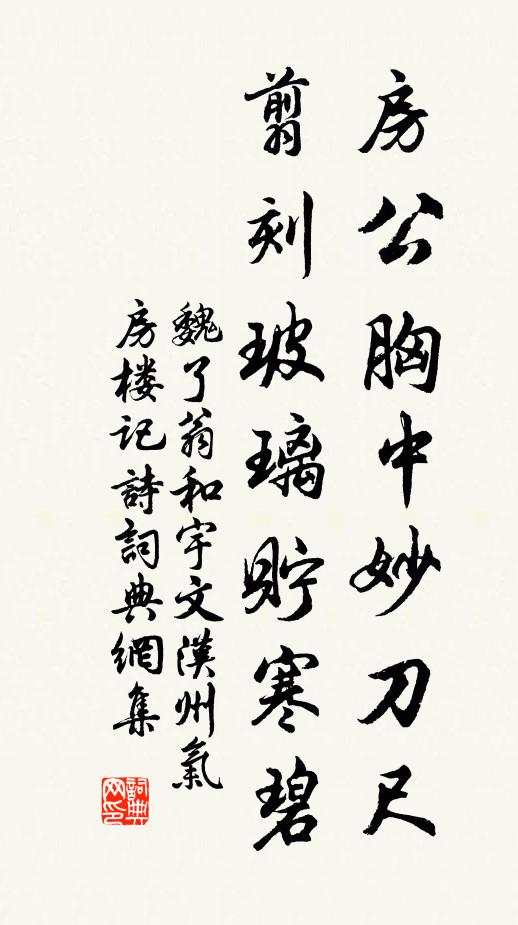 房公胸中妙刀尺
翦刻玻璃貯寒碧
魏了翁和宇文漢州氣
房楼记詩詞典網集
詞典
网印